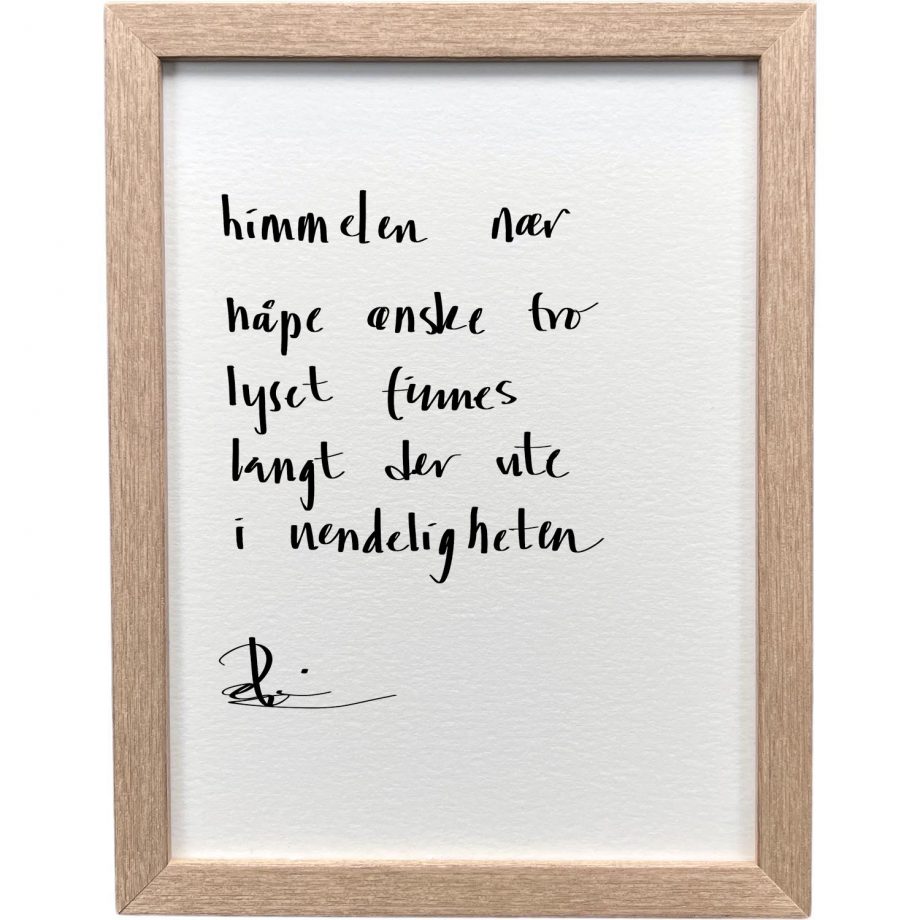 himmelen nær
håpe ønske tro
lyset finnes
langt der ute
i uendeligheten